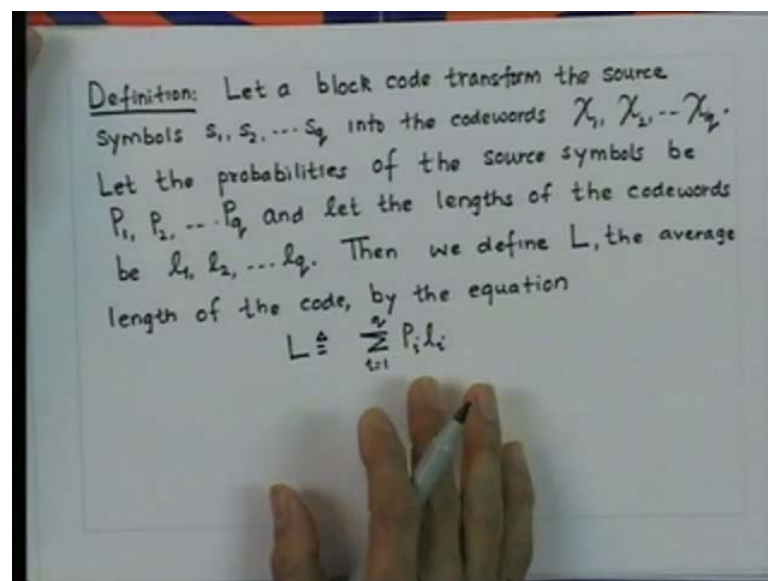 Definition: Let a block code transform the source
symbols s₁, s₂, ... sq into the codewords X₁, X₂, ... Xq.
Let the probabilities of the source symbols be
P₁, P₂, ... Pq and let the lengths of the codewords
be l₁, l₂, ... lq. Then we define L, the average
length of the code, by the equation
L ≜ q∑i=1 Pᵢlᵢ